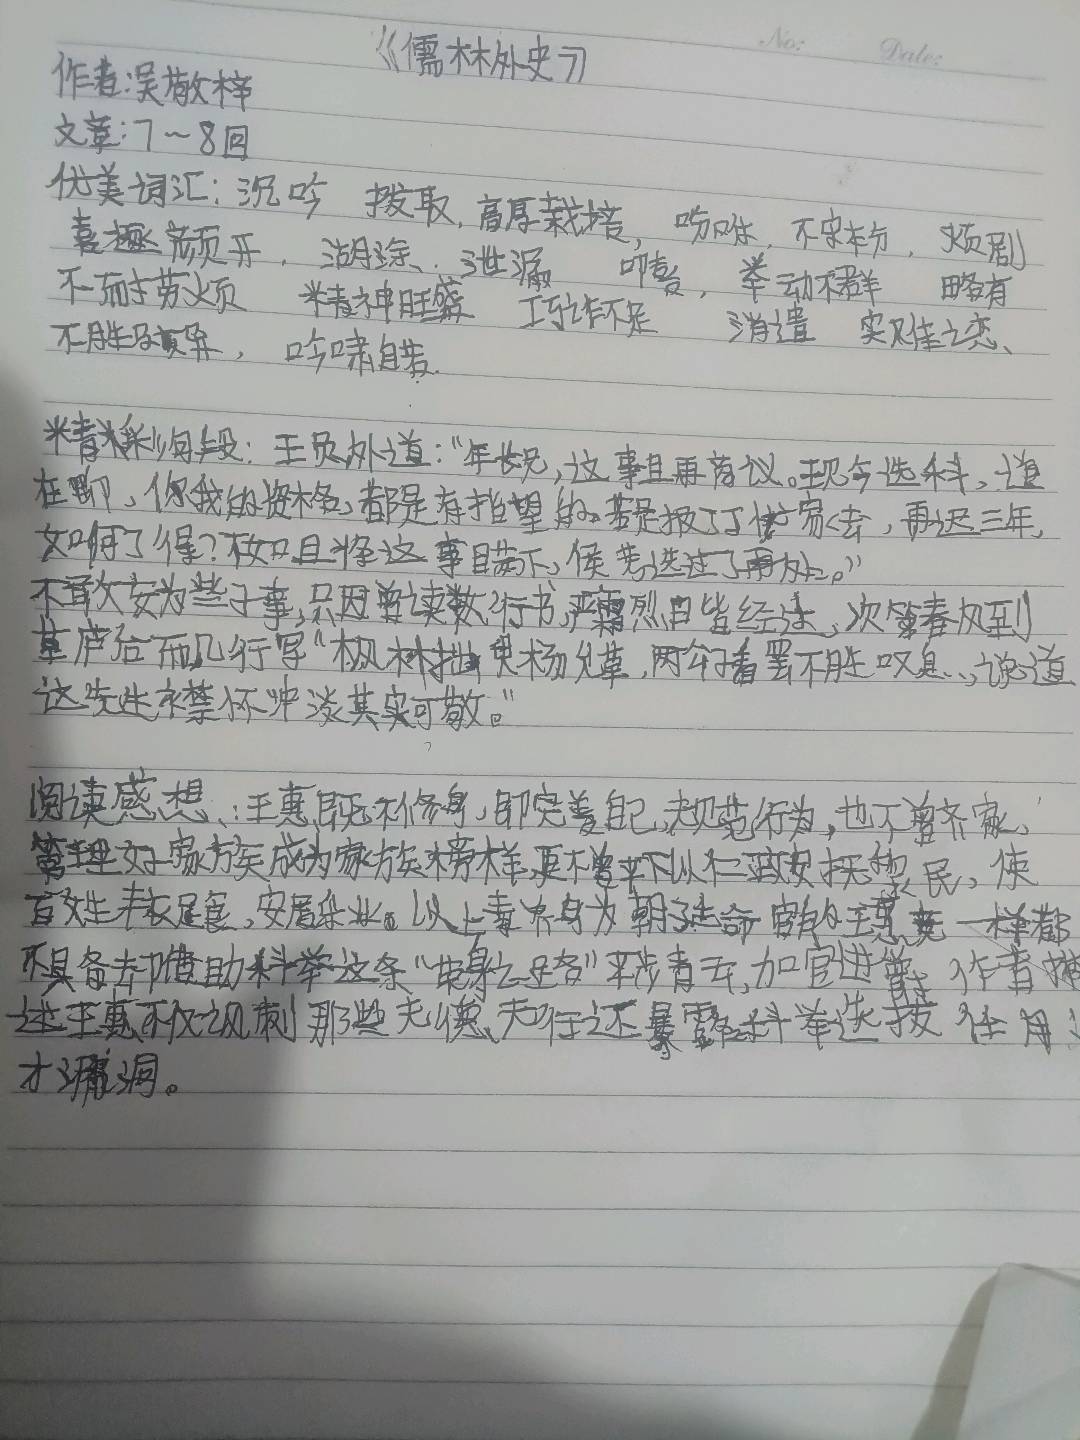 《儒林外史》
No: Date:
作者:吴敬梓
文章:7~8回
优美词汇:沉吟 拨取,高厚栽培,吩咐,不守本分,烦剧
喜极颜开,湖涂、泄漏 叩喜,举动不群 略有
不而劳烦 精神旺盛 巧诈不足 消遣 实难之恋、
不胜,吟啸自若.
精彩句段:王员外道:“年长兄,这事且再商议。现今选科、道
在即,你我的资格,都是有指望的。若是报了丁忧家去,再迟三年,
如何了得?不如且将这事瞒下,候考选过了再处。”
不敢妄为些子事,只因曾读数行书,严霜烈日皆经过,次第春风到
草庐后面几行写“枫林拙叟杨允草,两公子看罢不胜叹息、,说道
这先生襟怀冲淡其实可敬。”
阅读感想、:王惠既不修身,即完善自己,规范行为,也不曾齐家,
管理好家族成为家族榜样,更不曾平下以仁政安抚黎民,使
百姓丰衣足食,安居乐业。以上身为朝廷命官的王惠竟一样都
不具备却借助科举这条“荣身之路”平步青云,加官进爵,作者描
述王惠不仅讽刺那些无德、无行还暴露科举选拔任用
才漏洞。